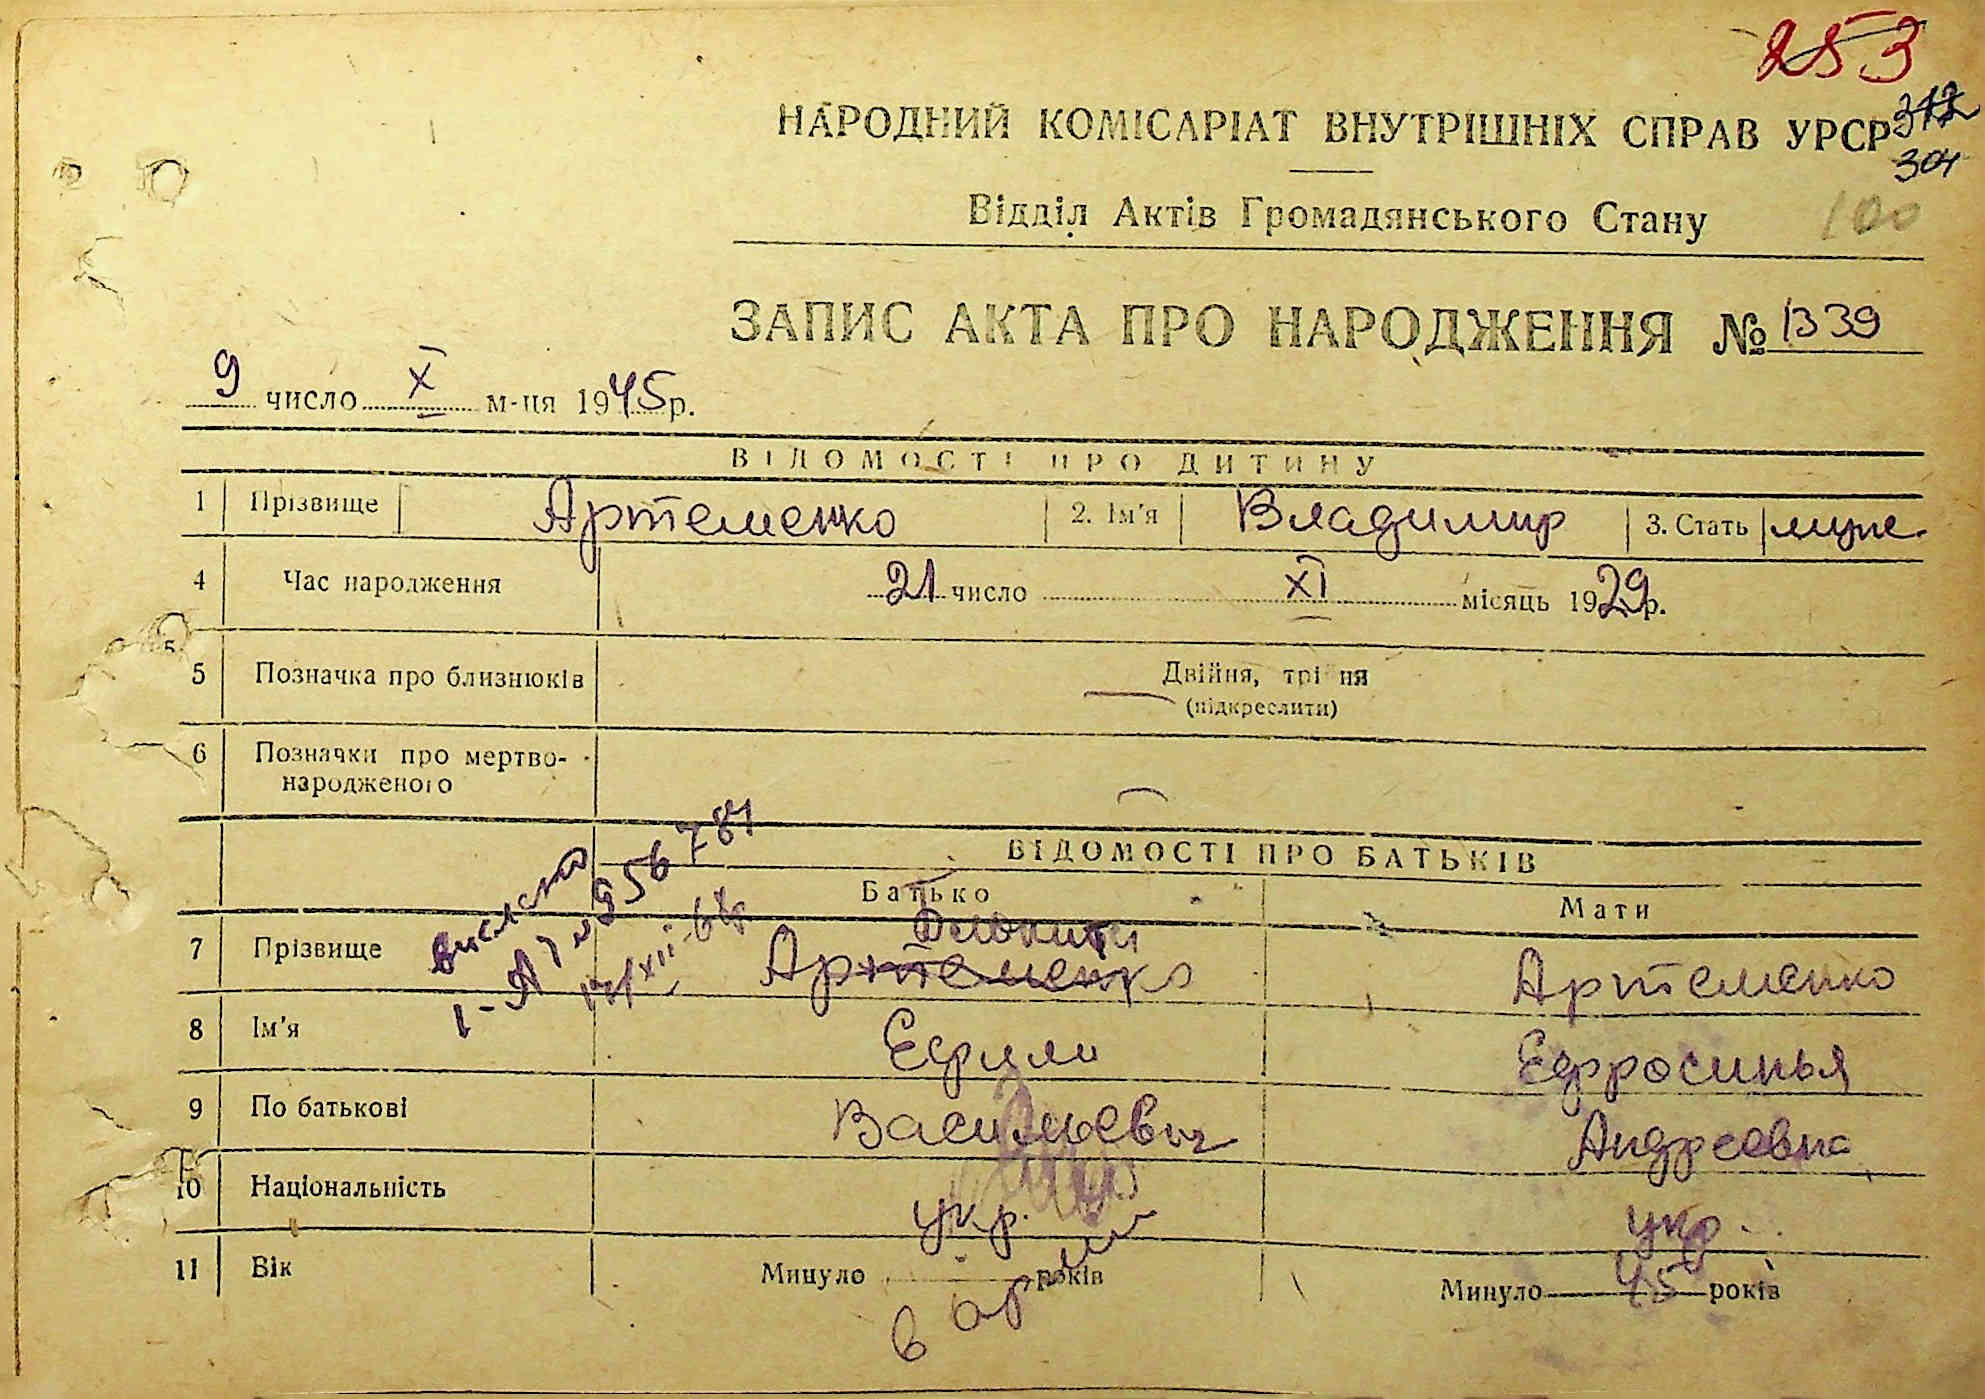 253
НАРОДНИЙ КОМІСАРІАТ ВНУТРІШНІХ СПРАВ УРСР
312
304
Відділ Актів Громадянського Стану 100
ЗАПИС АКТА ПРО НАРОДЖЕННЯ № 1339
9 число X м-ця 1945 р.
ВІДОМОСТІ ПРО ДИТИНУ
1 Прізвище Артеменко 2. Ім'я Владимир 3. Стать муж.
4 Час народження 21 число XI місяць 1929 р.
5 Позначка про близнюків Двійня, трійня
(підкреслити)
6 Позначки про мертво-
народженого
ВІДОМОСТІ ПРО БАТЬКІВ
Батько Мати
7 Прізвище Артеменко Артеменко
8 Ім'я Ефим Ефросинья
9 По батькові Васильевич Андреевна
10 Національність укр. укр.
11 Вік Минуло років Минуло 45 років
в армии